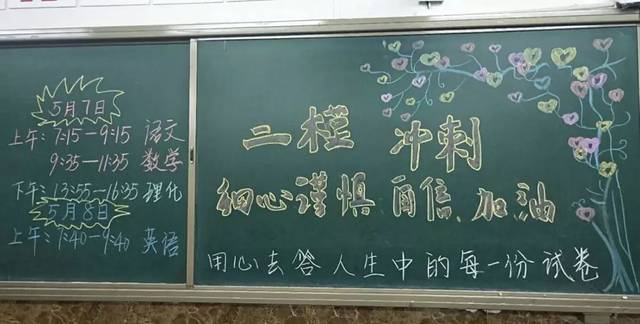 5月7日
上午：7:15—9:15 语文
9:35—11:35 数学
下午：13:55—16:35 理化
5月8日
上午：7:40—9:40 英语
二模 冲刺
细心谨慎 自信 加油
用心去答人生中的每一份试卷